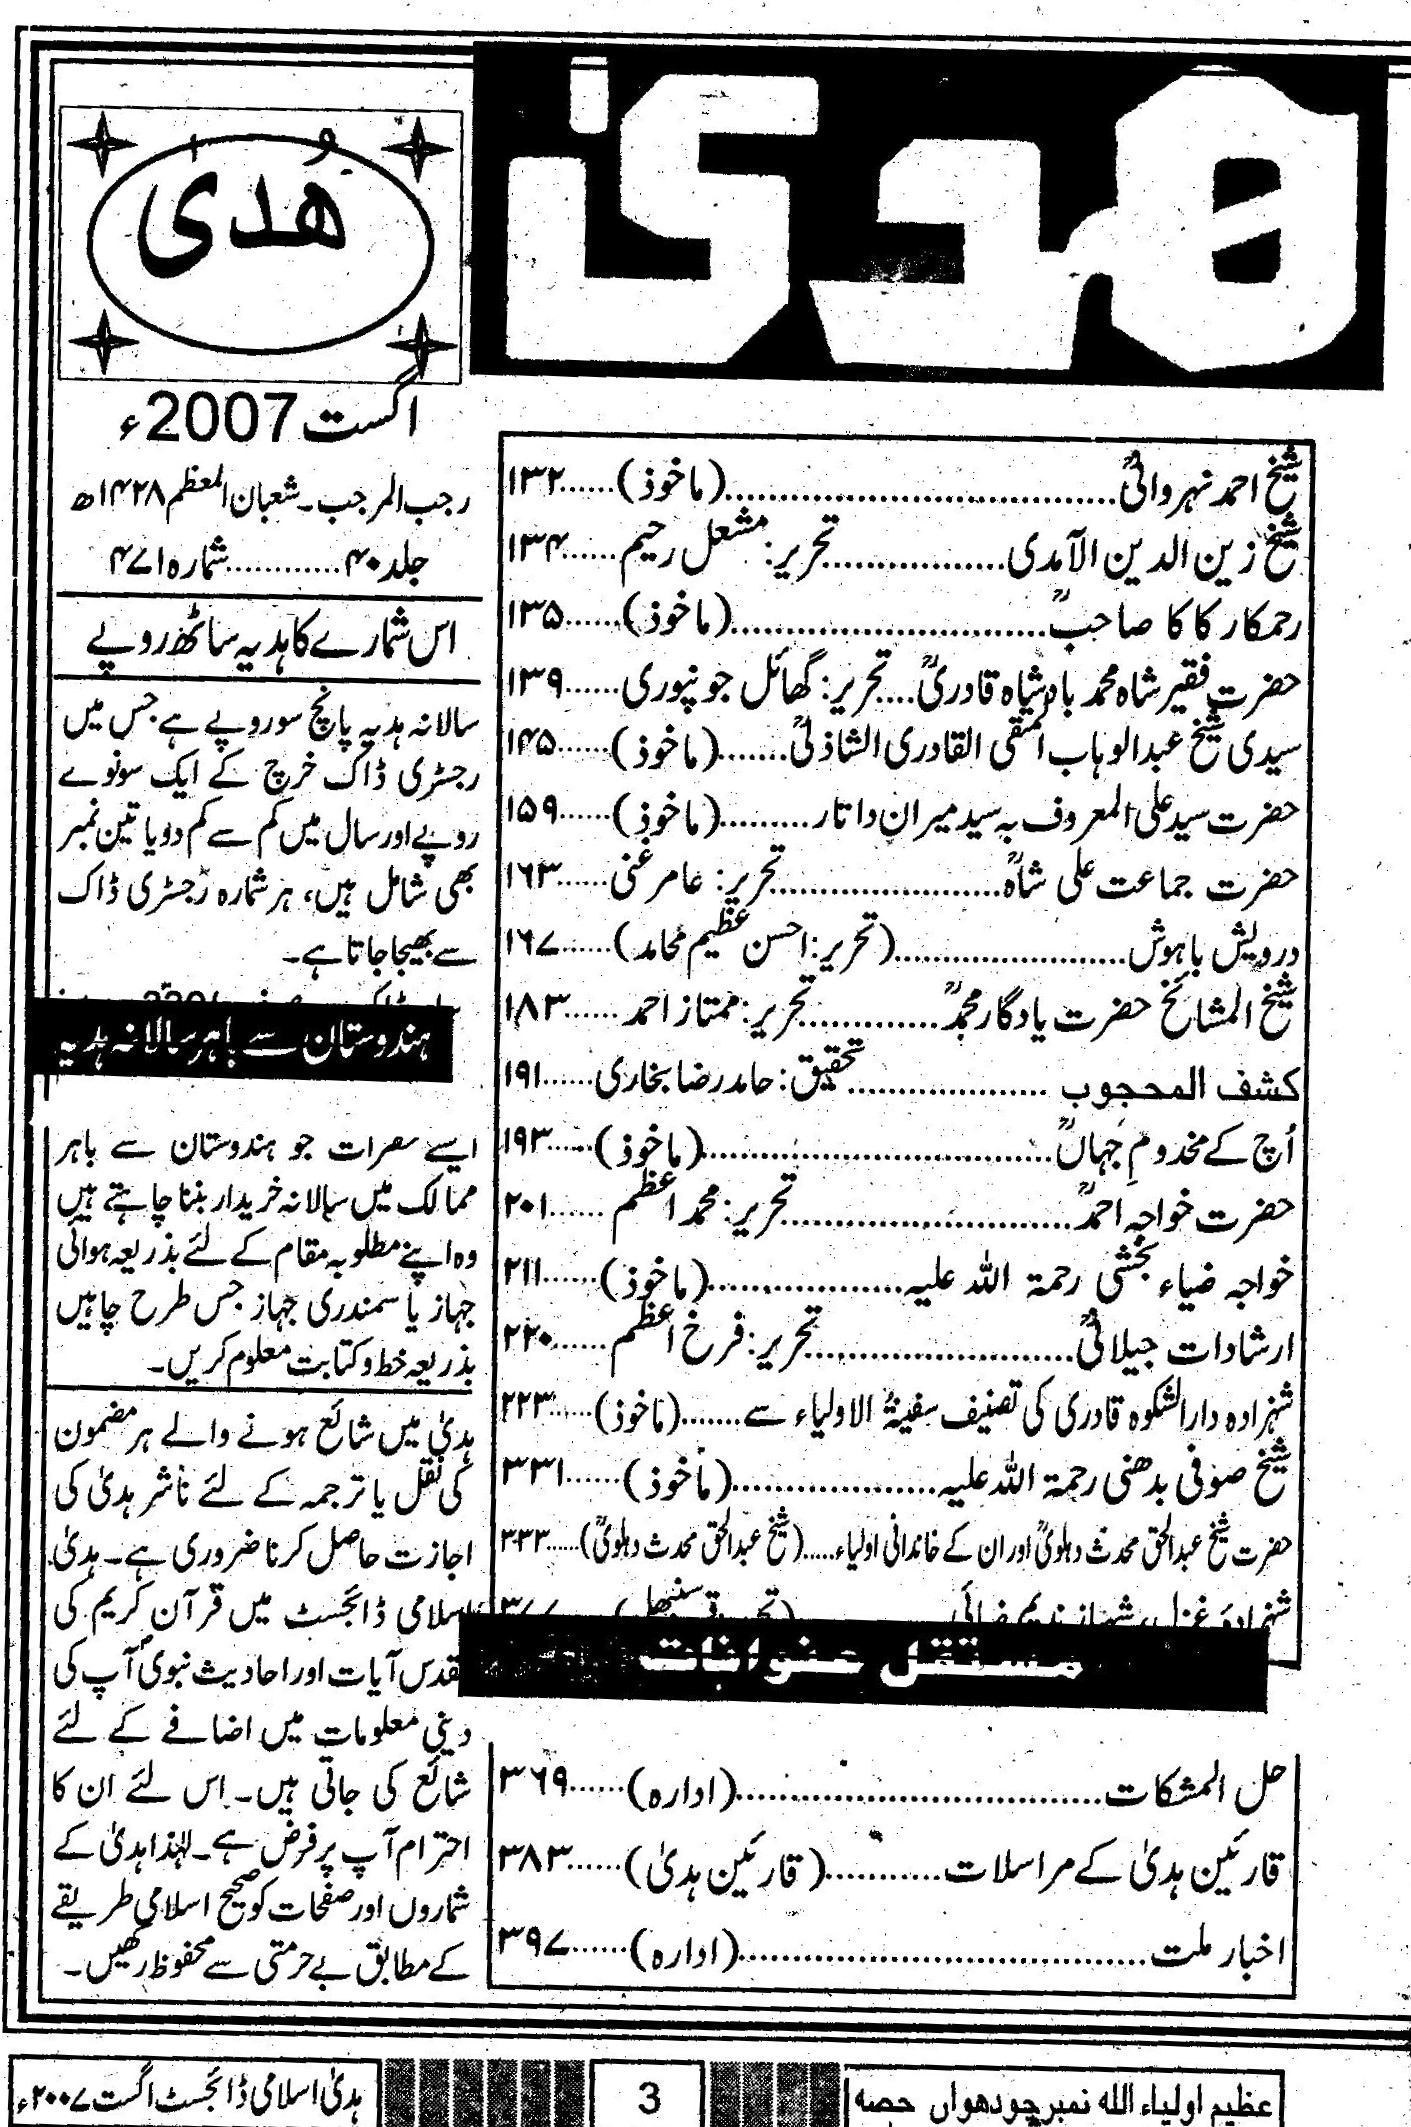 ھدیٰ
ھُدیٰ
اگست 2007ء
رجب المرجب۔شعبان المعظم ۱۴۲۸ھ
جلد ۴۰............شمارہ ۴۷۱
اس شمارے کا ہدیہ ساٹھ روپے
سالانہ ہدیہ پانچ سو روپے ہے جس میں
رجسٹری ڈاک خرچ کے ایک سو نوے
روپے اور سال میں کم سے کم دو یا تین نمبر
بھی شامل ہیں، ہر شمارہ رجسٹری ڈاک
سے بھیجا جاتا ہے۔
ہندوستان سے باہر سالانہ ہدیہ
ایسے حضرات جو ہندوستان سے باہر
ممالک میں سالانہ خریدار بننا چاہتے ہیں
وہ اپنے مطلوبہ مقام کے لئے بذریعہ ہوائی
جہاز یا سمندری جہاز جس طرح چاہیں
بذریعہ خط و کتابت معلوم کریں۔
ہدیٰ میں شائع ہونے والے ہر مضمون
کی نقل یا ترجمہ کے لئے ناشر ہدیٰ کی
اجازت حاصل کرنا ضروری ہے۔ ہدیٰ
اسلامی ڈائجسٹ میں قرآن کریم کی
مقدس آیات اور احادیث نبوی آپ کی
دینی معلومات میں اضافے کے لئے
شائع کی جاتی ہیں۔ اس لئے ان کا
احترام آپ پر فرض ہے۔ لہٰذا ہدیٰ کے
شماروں اور صفحات کو صحیح اسلامی طریقے
کے مطابق بے حرمتی سے محفوظ رکھیں۔
شیخ احمد نہروانیؒ......(ماخوذ)......۱۳۲
شیخ زین الدین الآمدی......تحریر: مشعل رحیم......۱۳۴
رحمکار کاکا صاحبؒ......(ماخوذ)......۱۳۵
حضرت فقیر شاہ محمد بادشاہ قادریؒ....تحریر: گھائل جونپوری......۱۳۹
سیدی شیخ عبدالوہاب المتقی القادری الشاذلیؒ.......(ماخوذ)......۱۴۵
حضرت سید علی المعروف بہ سید میران داتار.........(ماخوذ)......۱۵۹
حضرت جماعت علی شاہؒ......تحریر: عامر غنی......۱۶۳
درویش باہوش......(تحریر: احسن عظیم محامد)......۱۶۷
شیخ المشائخ حضرت یادگار محمدؒ......تحریر: ممتاز احمد......۱۸۳
کشف المحجوب......تحقیق: حامد رضا بخاری......۱۹۱
اُچ کے مخدومِ جہاںؒ......(ماخوذ)......۱۹۳
حضرت خواجہ احمدؒ......تحریر: محمد اعظم......۲۰۱
خواجہ ضیاء بخشی رحمۃ اللہ علیہ......(ماخوذ)......۲۱۱
ارشادات جیلانیؒ......تحریر: فرخ اعظم......۲۲۰
شہزادہ دارالشکوہ قادری کی تصنیف سفینۃ الاولیاء سے.......(ماخوذ)......۲۲۳
شیخ صوفی بدھنی رحمۃ اللہ علیہ......(ماخوذ)......۳۳۱
حضرت شیخ عبدالحق محدث دہلویؒ اور ان کے خاندانی اولیاء.....(شیخ عبدالحق محدث دہلویؒ).....۳۳۳
مستقل عنوانات
حل المشکات......(ادارہ)......۳۶۹
قارئین ہدیٰ کے مراسلات......(قارئین ہدیٰ)......۳۸۳
اخبار ملت......(ادارہ)......۳۹۷
عظیم اولیاء اللہ نمبر چودھواں حصہ
3
ہدیٰ اسلامی ڈائجسٹ اگست ۲۰۰۷ء